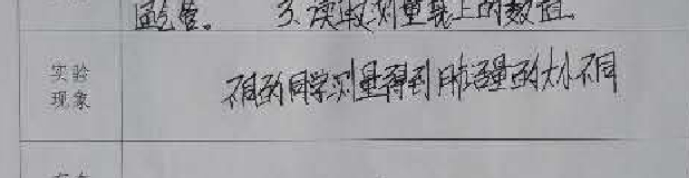 3. 读取测量表上的数值。
实验
现象
不同的同学测量得到肺活量的大小不同